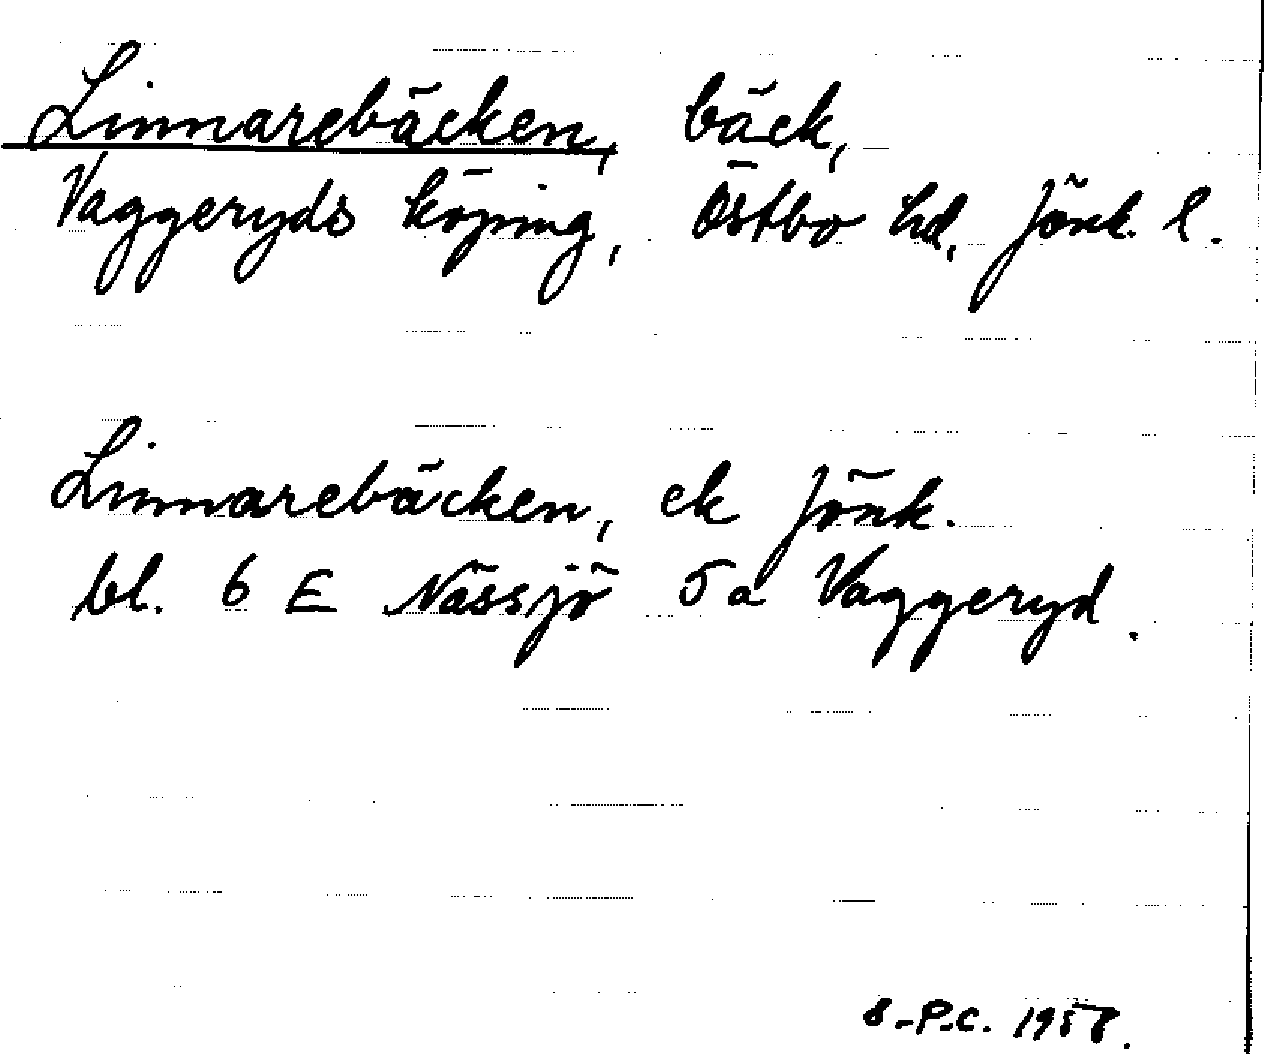 Linnarebäcken, bäck,
Vaggeryds köping, Östbo hd. Jönk. l.
Linnarebäcken, ek Jönk.
bl. 6 E Nässjö 5a Vaggeryd.
P.C. 1958.